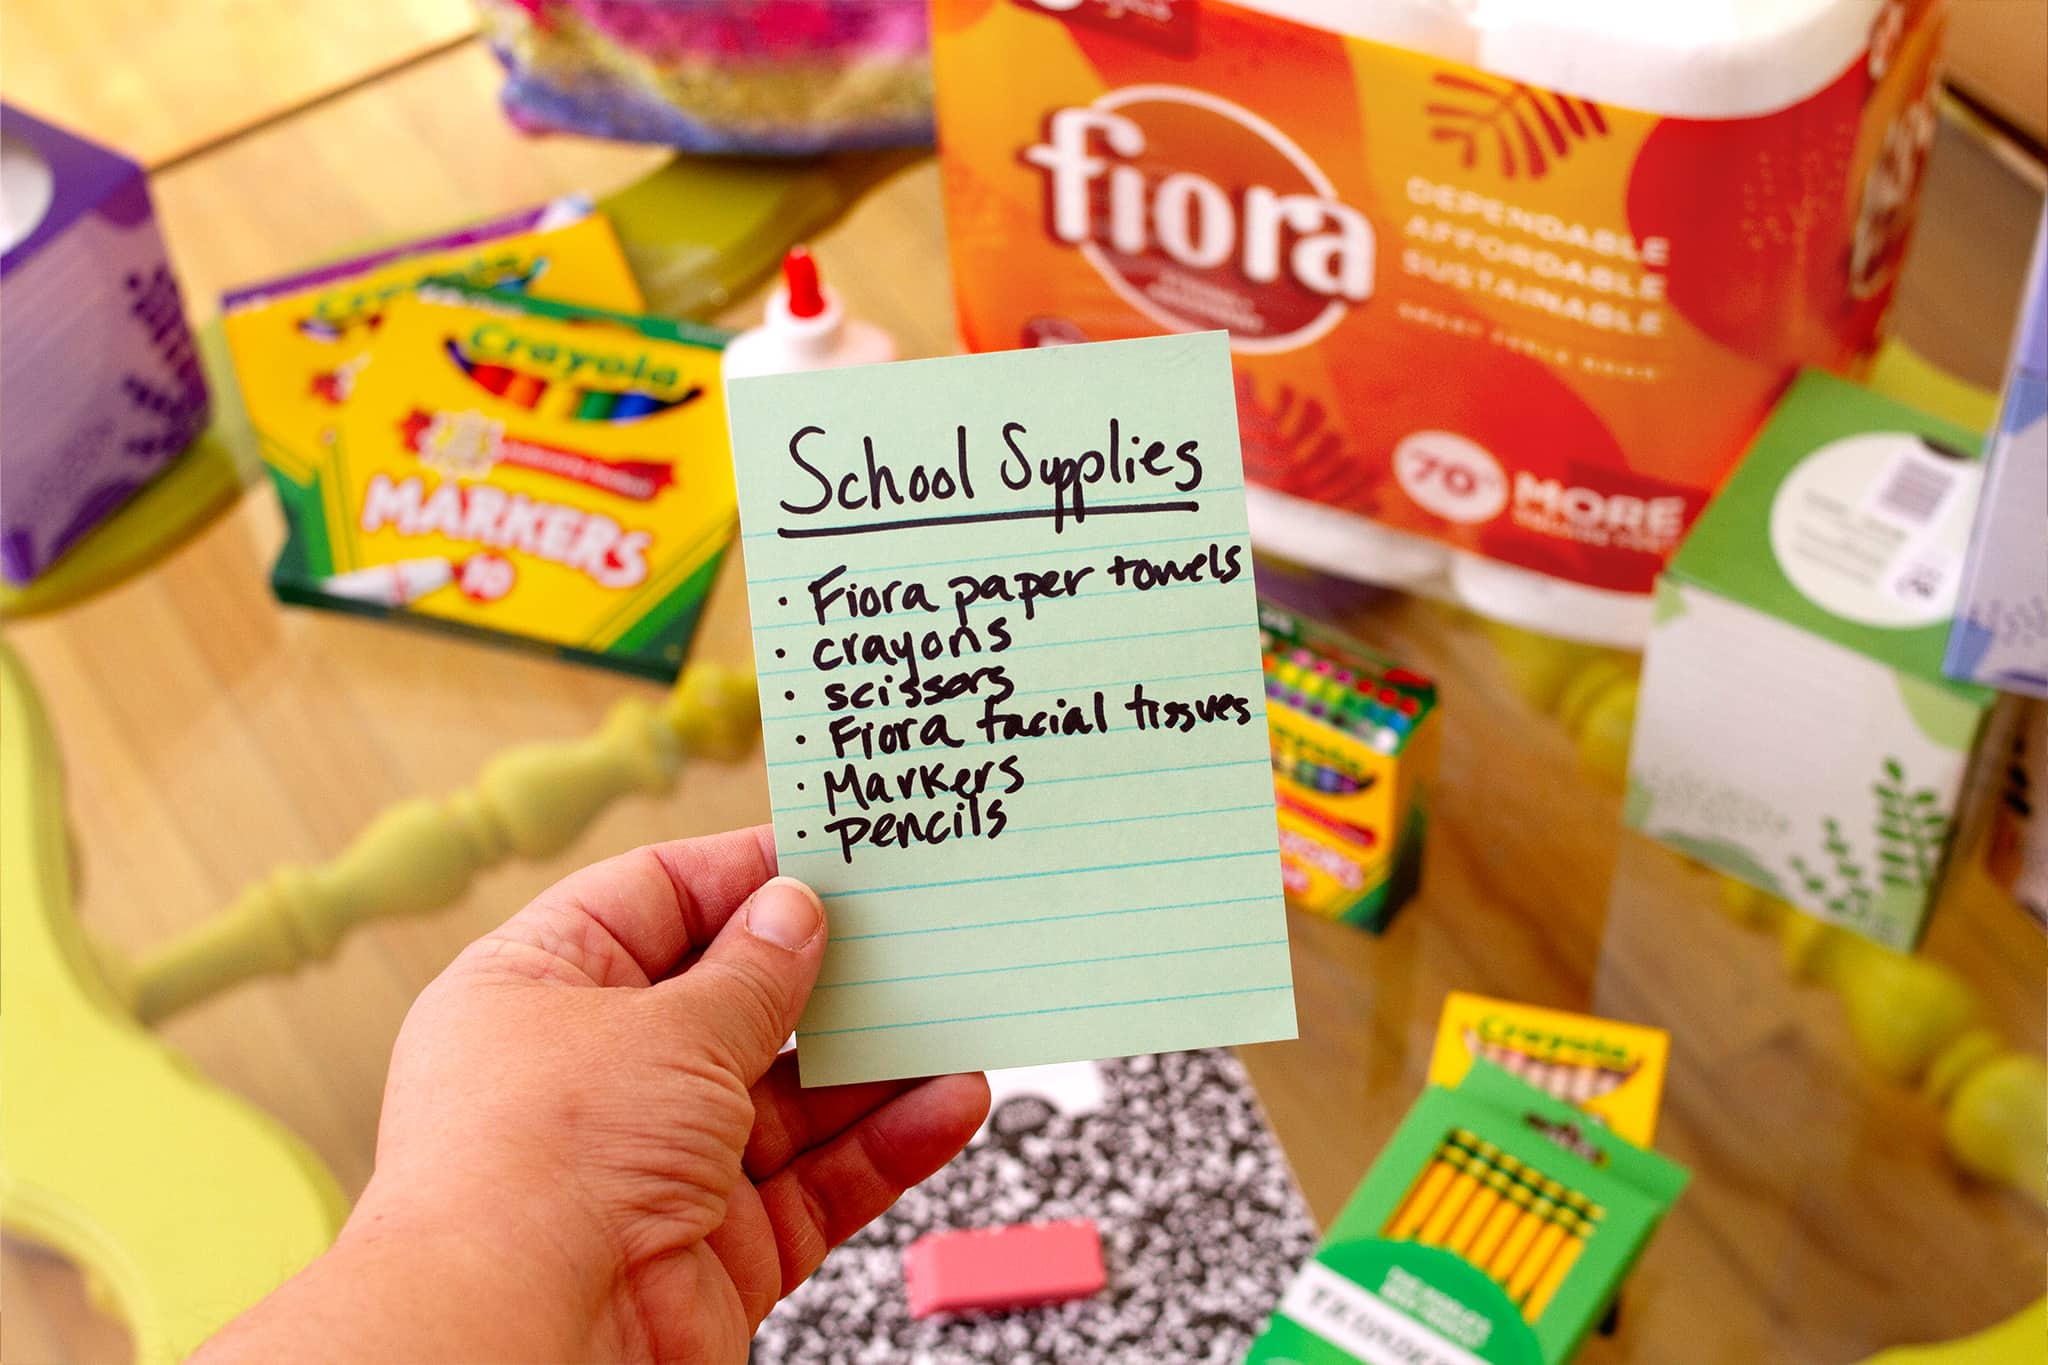 fiora
DEPENDABLE
AFFORDABLE
SUSTAINABLE
70%
MORE
Crayola
MARKERS
10
School Supplies
• Fiora paper towels
• crayons
• scissors
• Fiora facial tissues
• Markers
• pencils
Crayola